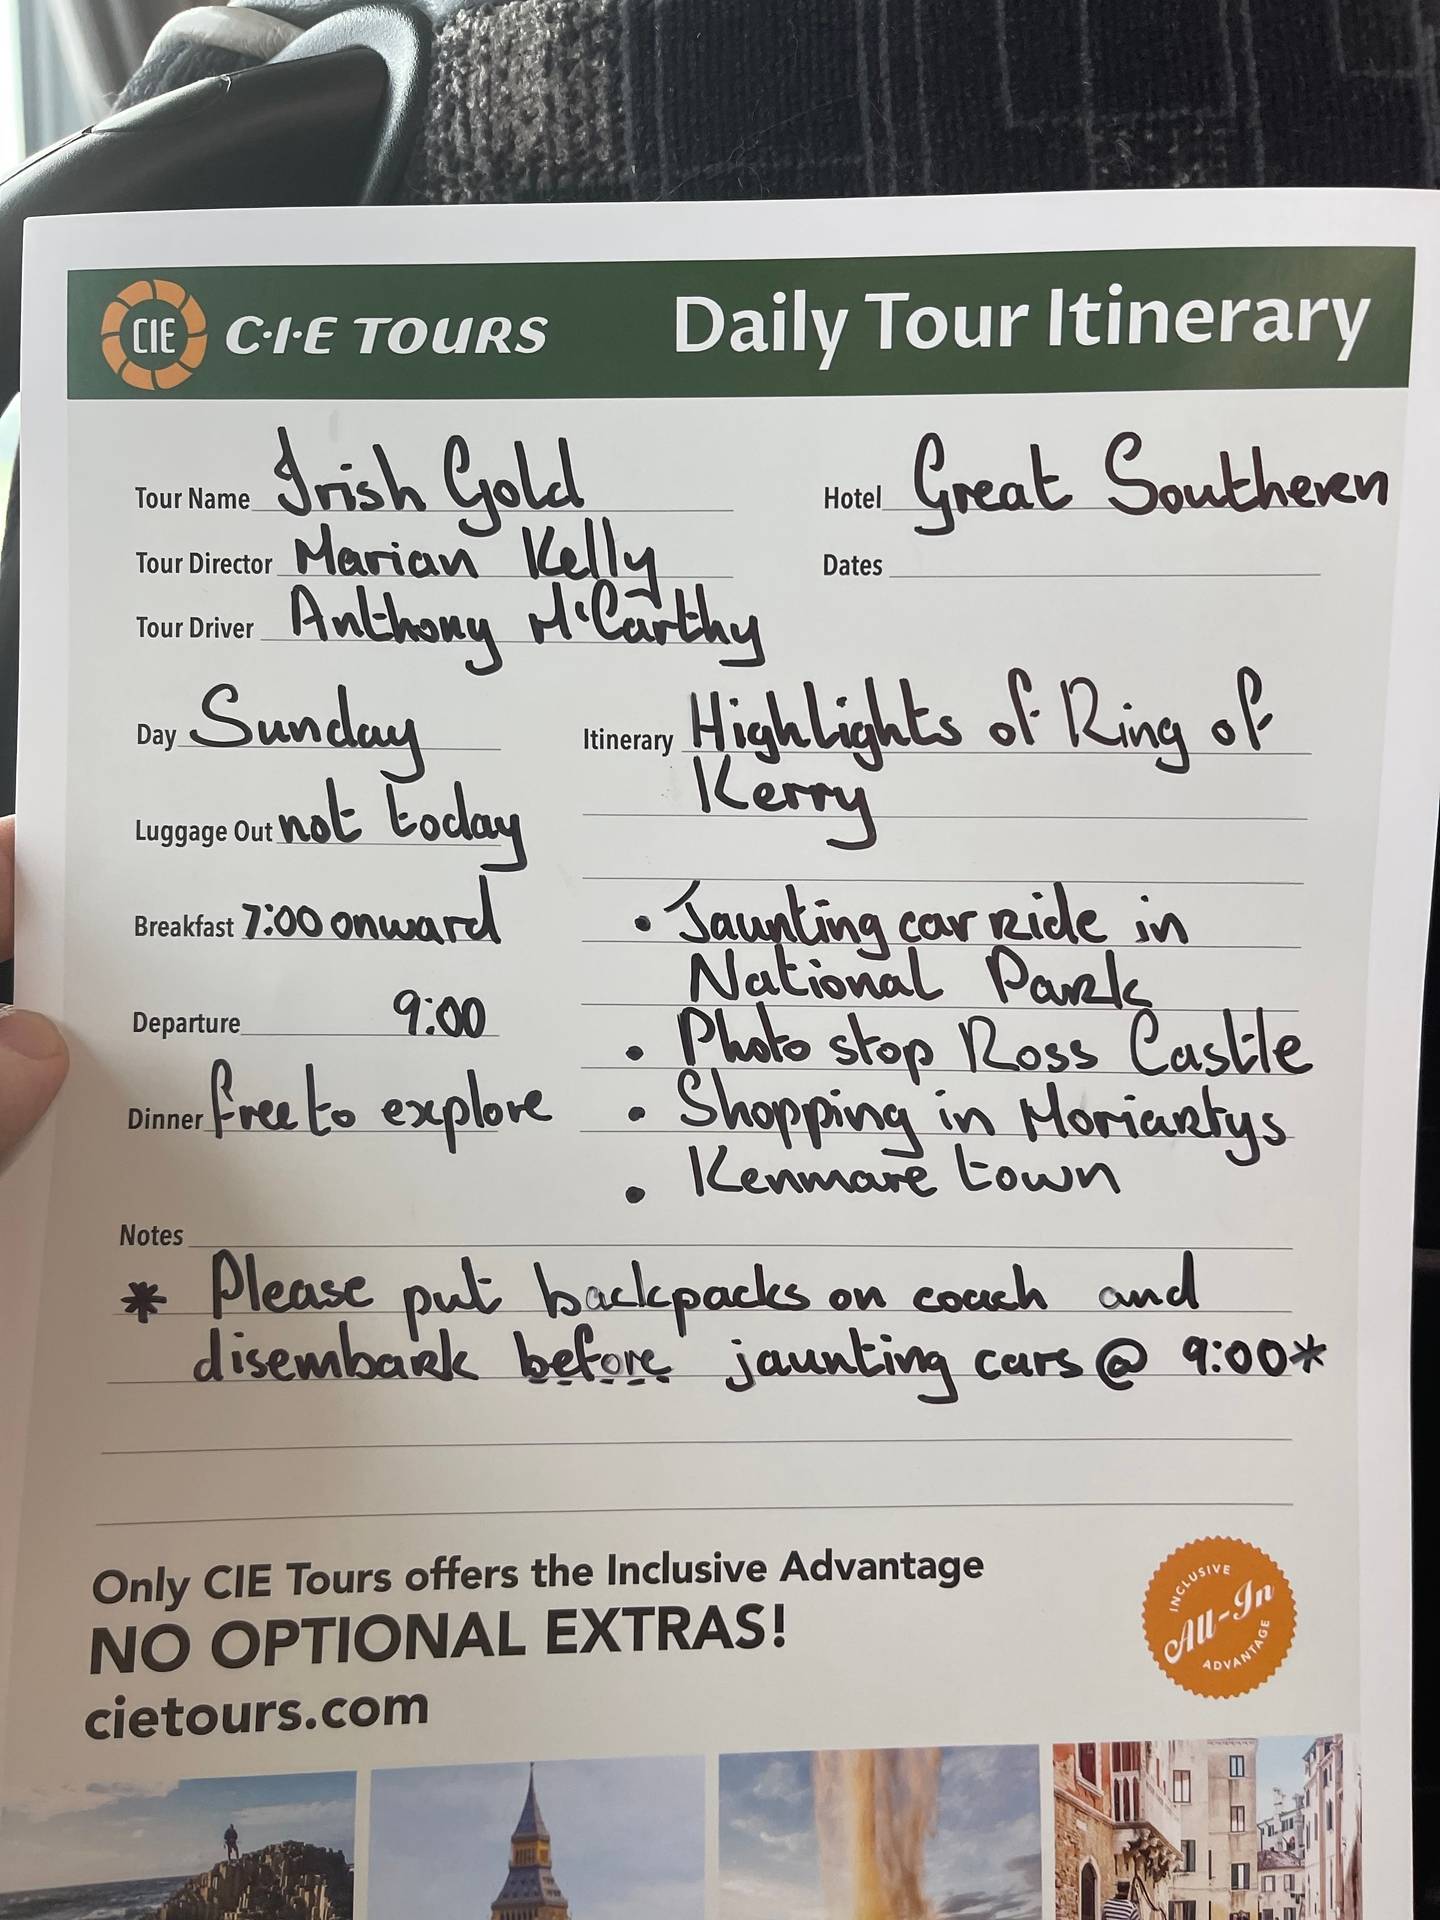 CIE C·I·E TOURS Daily Tour Itinerary
Tour Name Irish Gold
Hotel Great Southern
Tour Director Marian Kelly
Dates
Tour Driver Anthony M'Carthy
Day Sunday
Luggage Out not today
Breakfast 7:00 onward
Departure 9:00
Dinner free to explore
Itinerary Highlights of Ring of
Kerry
• Jaunting car ride in
National Park
• Photo stop Ross Castle
• Shopping in Moriartys
• Kenmare town
Notes
* Please put backpacks on coach and
disembark before jaunting cars @ 9:00*
Only CIE Tours offers the Inclusive Advantage
NO OPTIONAL EXTRAS!
cietours.com
INCLUSIVE
All-In
ADVANTAGE